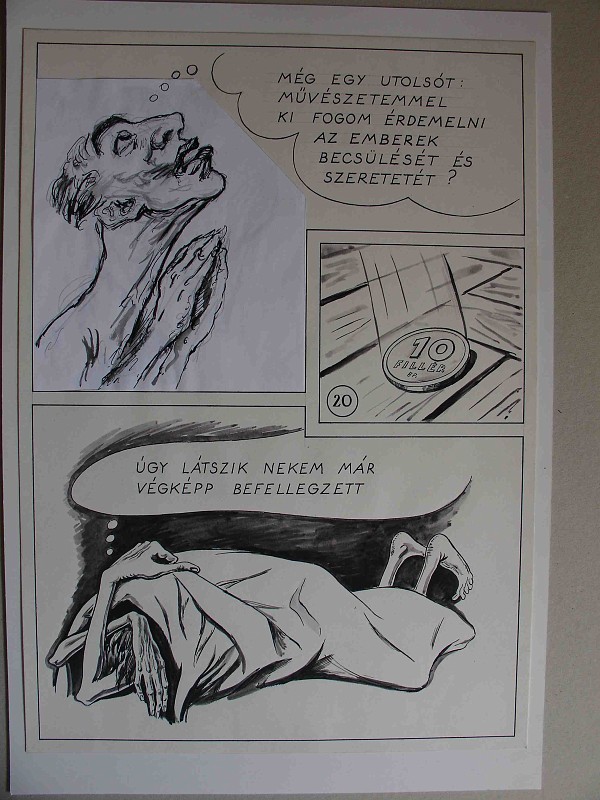 MÉG EGY UTOLSÓT:
MŰVÉSZETEMMEL
KI FOGOM ÉRDEMELNI
AZ EMBEREK
BECSÜLÉSÉT ÉS
SZERETETÉT?
10
FILLÉR
BP.
20
ÚGY LÁTSZIK NEKEM MÁR
VÉGKÉPP BEFELLEGZETT